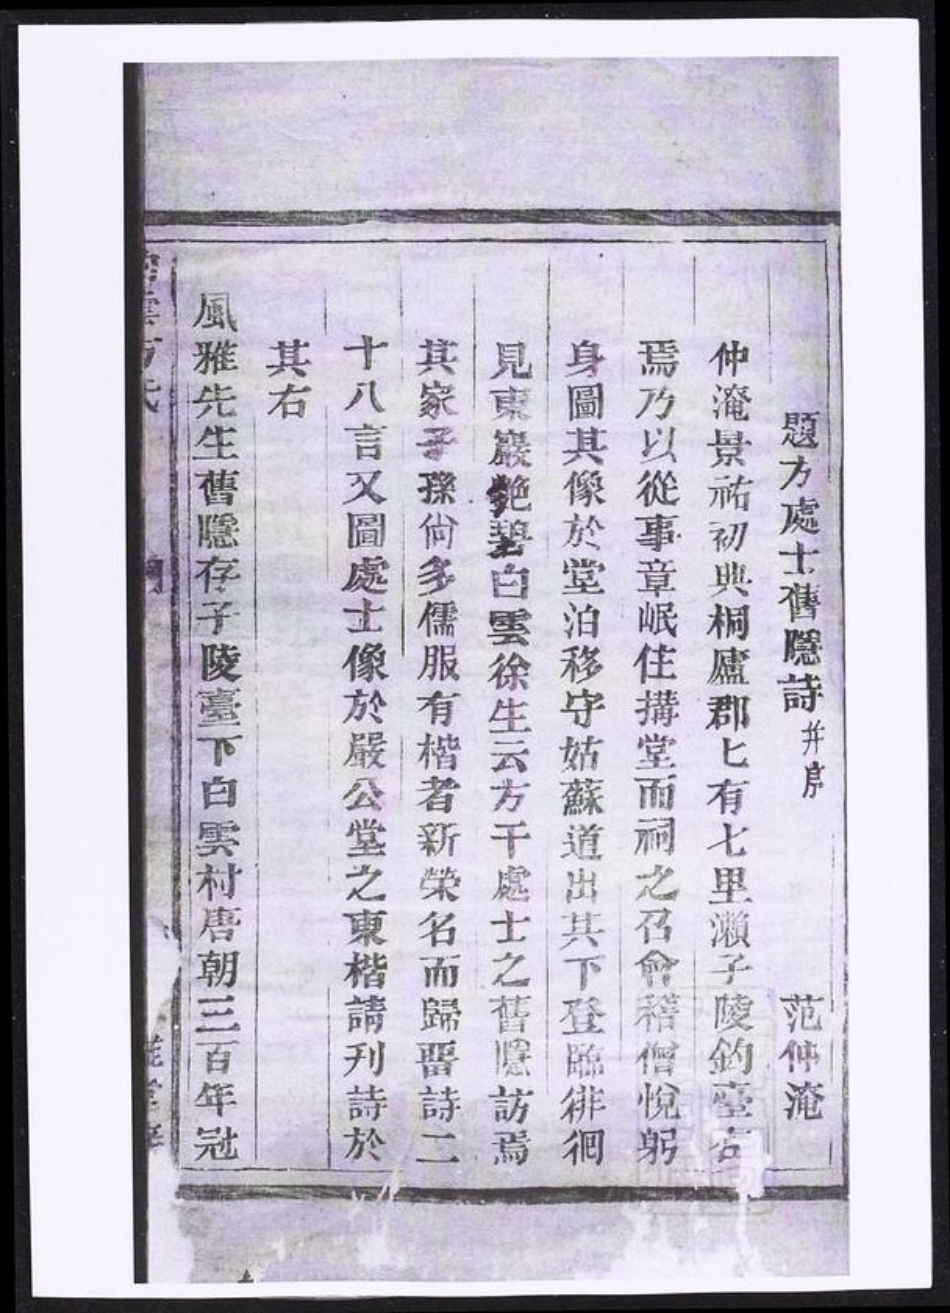 題方處士舊隱詩 并序 范仲淹
仲淹景祐初典桐廬郡匕有七里瀨子陵釣臺在
焉乃以從事章岷住搆堂而祠之召會稽僧悅躬
身圖其像於堂泊移守姑蘇道出其下登臨徘徊
見東巖艶碧白雲徐生云方干處士之舊隱訪焉
其家子孫尙多儒服有楷者新榮名而歸畱詩二
十八言又圖處士像於嚴公堂之東楷請刋詩於
其右
風雅先生舊隱存子陵臺下白雲村唐朝三百年冠
雲方氏